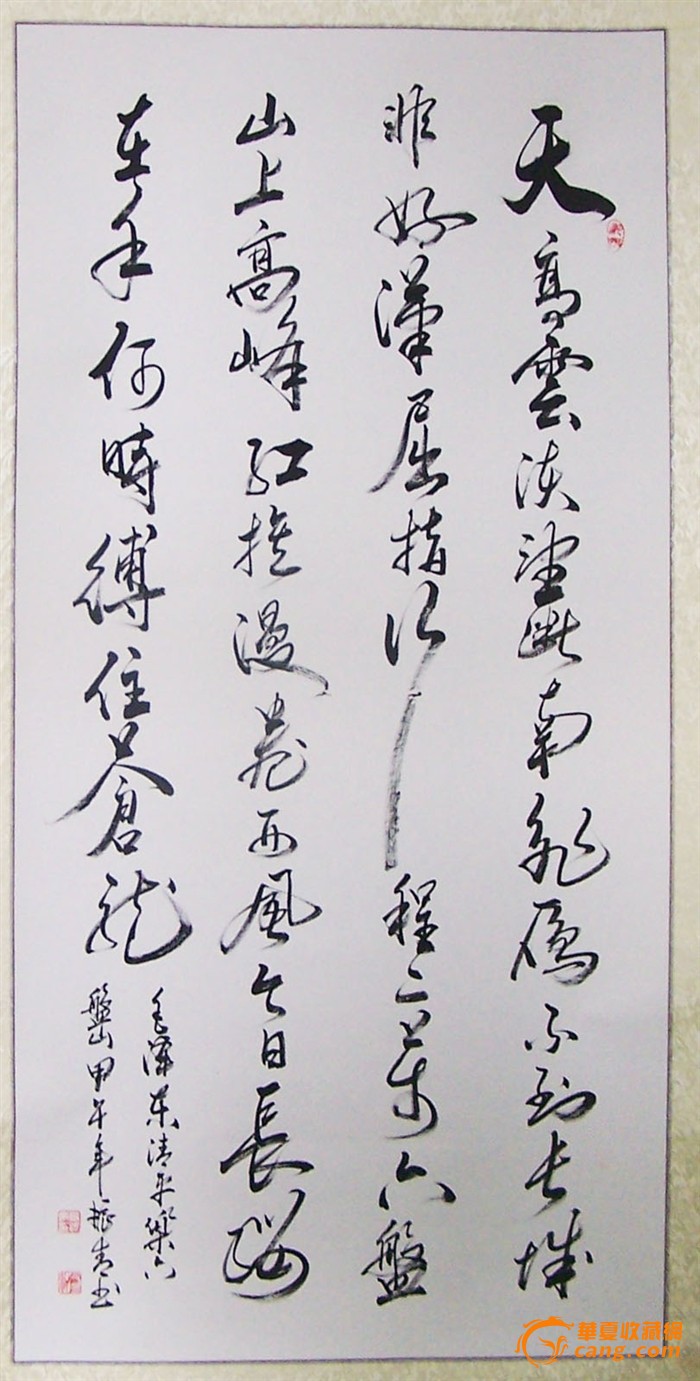 天高雲淡望斷南飛雁不到長城
非好漢屈指行程二萬六盤
山上高峰紅旗漫卷西風今日長纓
在手何時縛住蒼龍
毛澤東清平樂六
盤山甲午年振青書
華夏收藏網
cang.com